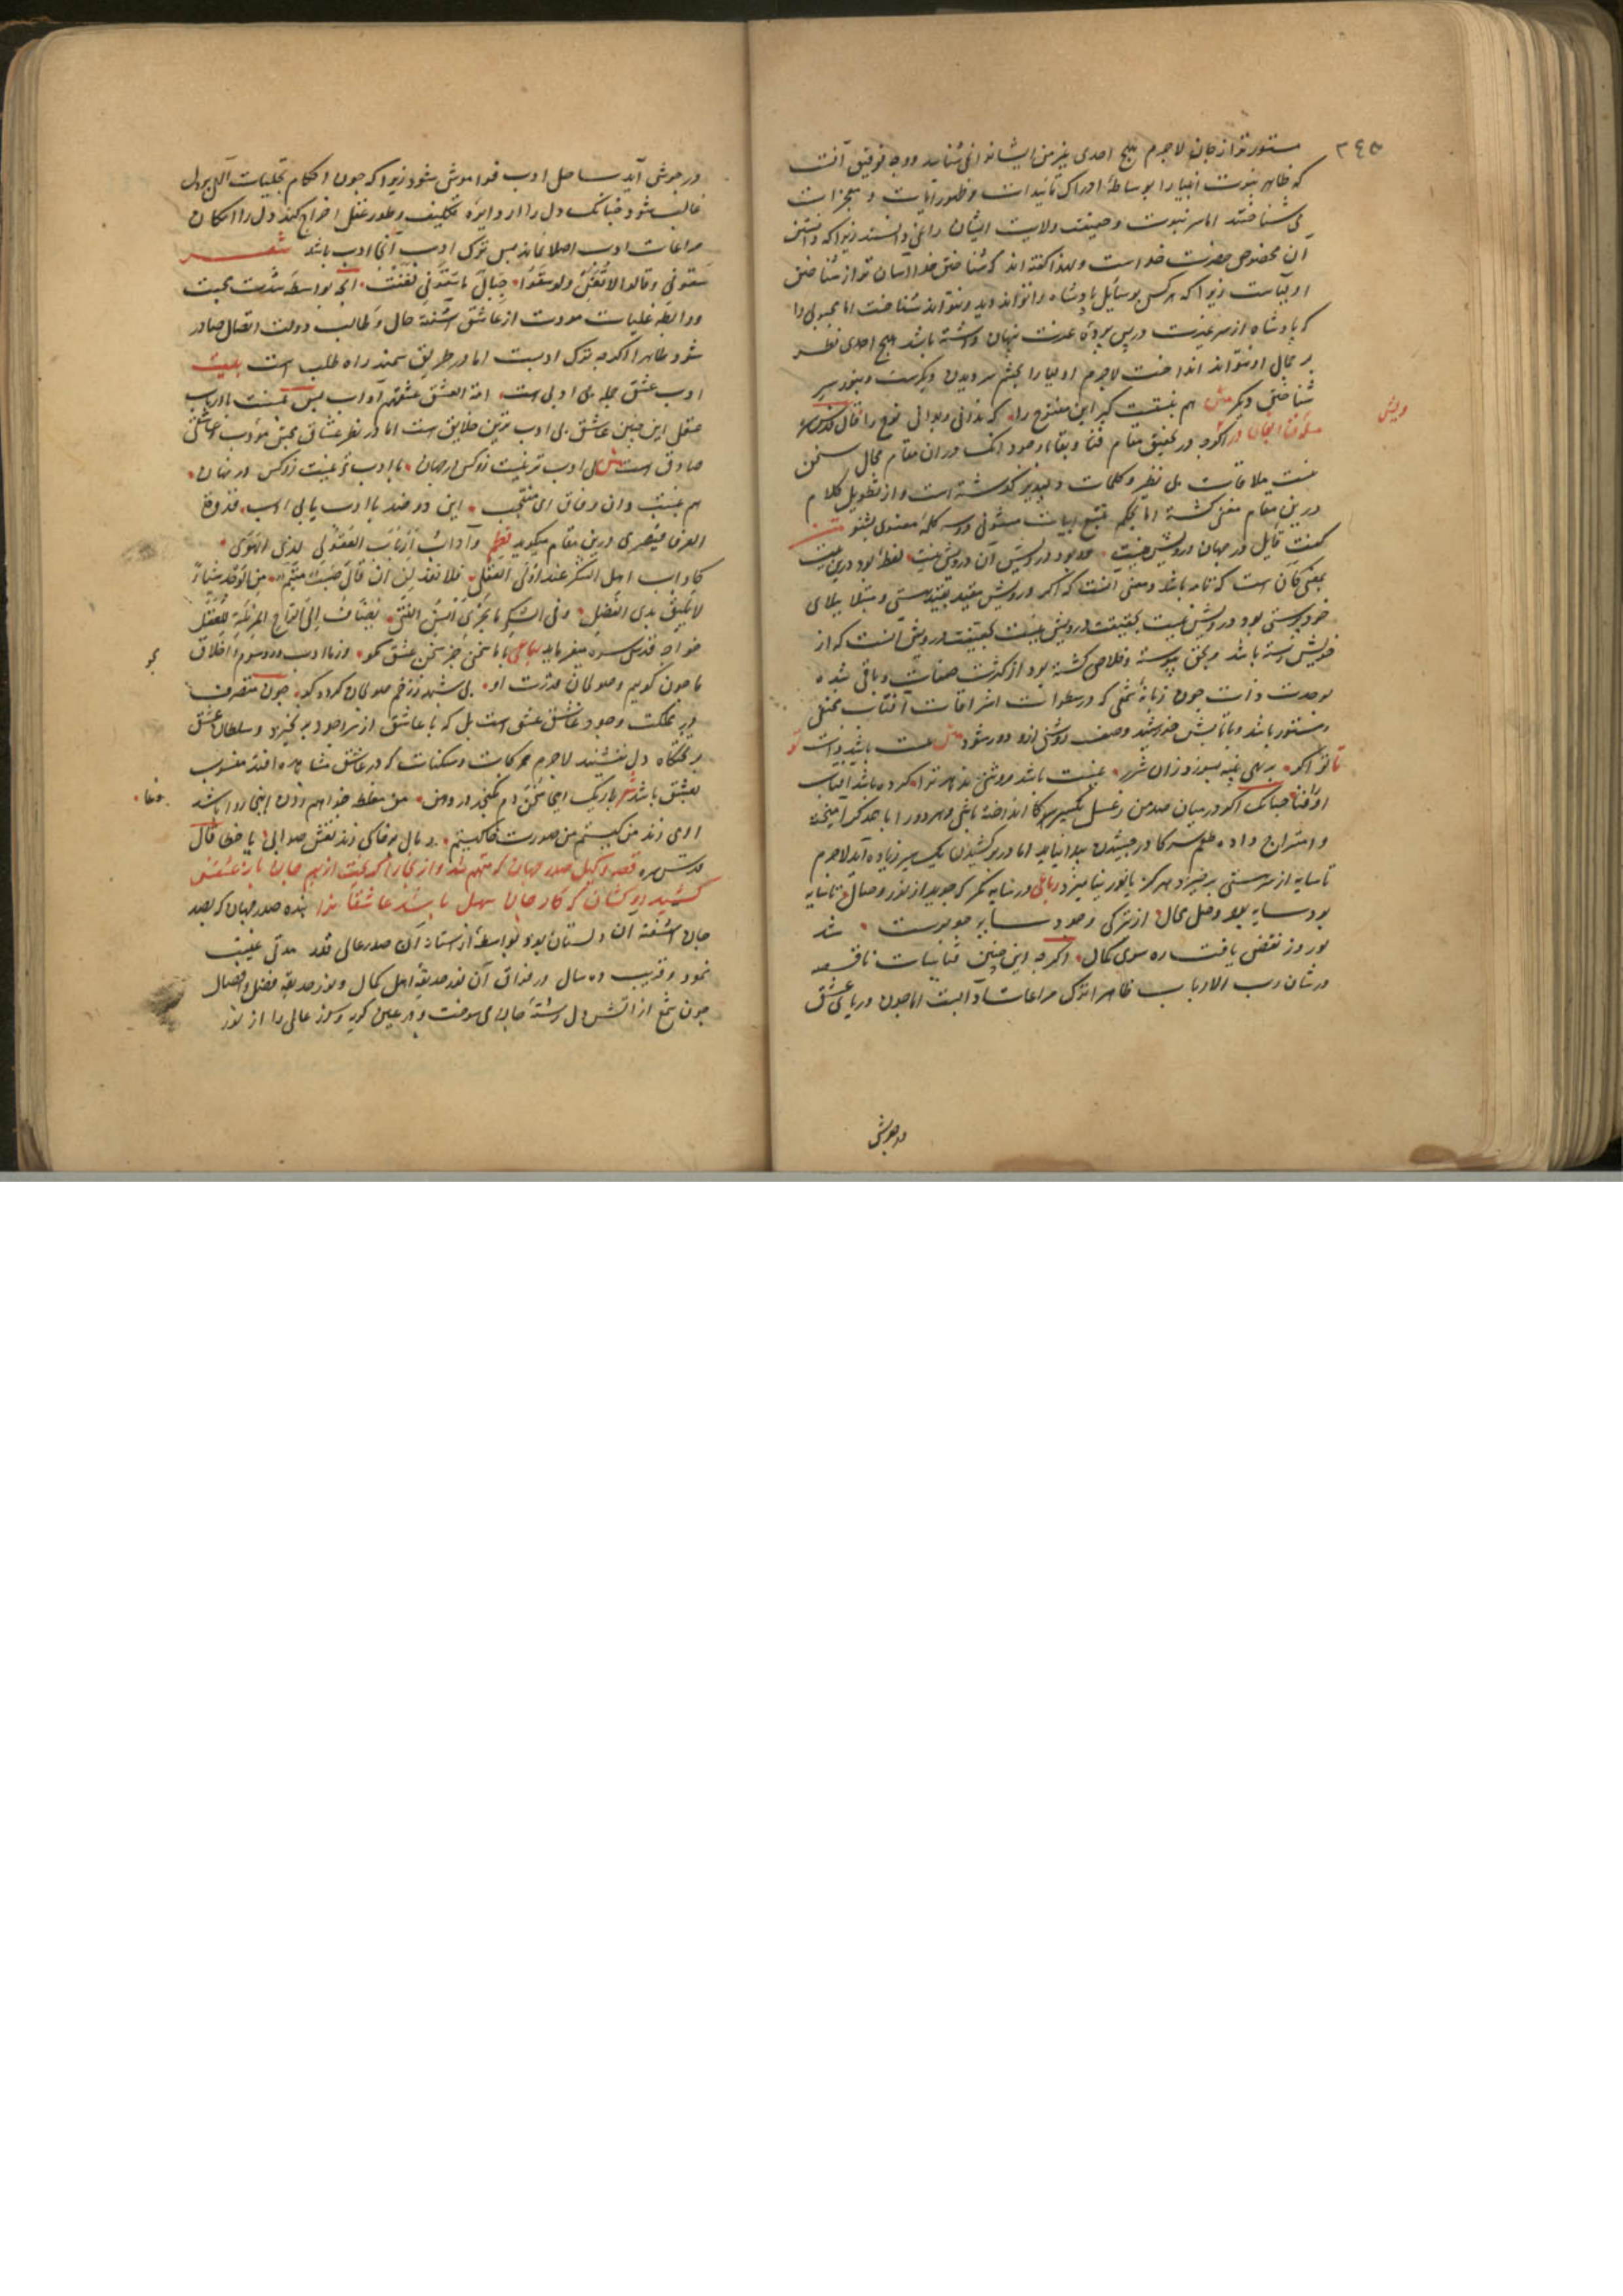 ٣٤٥
مستور تر از جان لاجرم هیچ احدی بغیر من ایشانرا نمی شناسد ووجه توفیق آنست
که ظاهر نبوت انبیا را بوساطهٔ ادراک تأییدات و ظهور آیات و معجزات
می شناختند اما سر نبوت و حقیقت ولایت ایشان را نمی دانستند زیرا که دانستن
آن مخصوص حضرت خداست ولهذا کفته اند که شناختن خدا آسان تر از شناختن
اولیاست زیرا که هر کس بوسایل پادشاه را تواند دید و تواند شناخت اما محبوبی را
که پادشاه از سر غیرت در پس پردهٔ عزت پنهان داشته باشد هیچ احدی نظر
بر جمال او نتواند انداخت لاجرم اولیا را بچشم سر دیدن دیکرست و بنور سر
شناختن دیکر متن هم بنسبت کیر این مفتوح را که بدانی و ندانی نوح را قال قدس سره
مسئلهٔ فنا و بقای درویش
اکرچه در تحقیق مقام فنا و بقا با وجود آنک در ان مقام مجال سخن
نیست ملاقات بی نظیر و کلمات دلپذیر کذشته است و از تطویل کلام
درین مقام مغنی کشته اما بحکم تتبع ابیات مثنوی دو سه کلمهٔ معنوی بشنو متن
کفت قایل در جهان درویش نیست ور بود درویش آن درویش نیست لفظ بود درین بیت
بمعنی کان است که تامه باشد و معنی آنست که اکر درویش مقید بقید هستی و مبتلا ببلای
خود پرستی بود درویش نیست بحقیقت درویش نیست بحقیقت درویش آنست که از
خویش رسته باشد و بحق پیوسته و خلاص کشته بود از کثرت صفات و باقی شده
بوحدت ذات چون زبانهٔ شمعی که در سطوات اشراقات آفتاب مختفی
و مستور باشد و بتابش خورشید وصف روشنی ازو دور شود متن هست باشد ذات او
تا تو اکر برنهی پنبه بسوزد زان شرر نیست باشد روشنی ندهد ترا کرده باشد آفتاب
او را فنا چنانک اکر در میان صد من عسل یکسیر سرکا انداخته باشی و هر دو را با همدکر آمیخته
و امتزاج داده طعم سرکا در چشیدن پیدا نیاید اما در برکشیدن یک سیر زیاده آید لاجرم
تا سایه از سر هستی برخیزد هرکز با نور نیامیزد رباعی در سایه نکر که جوید از نور وصال تا سایه
بود سایه بود وصل محال از ترکی وجود سایه چو برست شد
نور و ز نقص یافت ره سوی کمال اکرچه این چنین قیاسات ناقصه
در شان رب الارباب ظاهرا ترک مراعات آدابست اما چون دریای عشق
درجوش
در جوش آید ساحل ادب فراموش شود زیرا که چون احکام تجلیات الهی بر دل
غالب شود چنانک دل را از دایرهٔ تکلیف و طور عقل اخراج کند دل را امکان
مراعات ادب اصلا نماند پس ترک ادب آنجا ادب باشد شعر
سقونی وقالوا لا تغن ولو سقوا جبال ما سقونی لغنت آنچه بواسطهٔ شدت محبت
ورابطهٔ غلیات مودت از عاشق آشفته حال و طالب دولت اتصال صادر
شود ظاهرا اکرچه ترک ادبست اما در طریق سمند راه طلب است بیت
ادب عشق جمله بی ادبی است امة العشق عشقهم آداب پس بنسبت با ارباب
عقل این چنین عاشق بی ادب ترین خلایق است اما در نظر عشاق بحق مؤدب عاشقی
صادق است متن بی ادب تر نیست زو کس در جهان با ادب تر نیست زو کس در نهان
هم بنسبت دان وفاق ای منتجب این دو ضد با ادب یا بی ادب قدوة
العرفا قیصری درین مقام میکوید نظم وآداب ارباب العقول لدی الهوی
کآداب اهل السکر عند اولی العقل فلا تعذلن ان قال صب متیم من الوجد شیئا
لا یلیق بذی الفضل وفی السکر ما یجری علی السن الفتی یضاف الی الراح المزیلة للعقل
خواجه قدس سره میفرماید رباعی با ما سخن جز سخن عشق مکو وز ما ادب و رسوم و اخلاق مجو
ما چون کوییم و صولجان قدرت او بی شبهه ز زخم صولجان کردد کو چون متصرف
در مملکت وجود عاشق عشق است بل که با عاشق از سر وجود برخیزد و سلطان عشق
بر تختکاه دل نشیند لاجرم حرکات و سکنات که در عاشق مشاهده افتد منسوب
بعشق باشد
او می زند من کیستم من صورت خاکیستم رمال بر خاکی زند نقش صوابی یا خطا قال
قدس سره قصهٔ وکیل صدر جهان که متهم شد و از بخارا کریخت از بیم جان باز عشقش
کشید رو کشان که کار جان سهل باشد عاشقان را بندهٔ صدر جهان که بصد
جان آشفتهٔ آن دلستان بود بواسطه از آستانهٔ آن صدر عالی قدر مدتی غیبت
نمود و قریب ده سال در فراق آن نور حدیقهٔ اهل کمال و نور حدیقهٔ فضل و افضال
چون شمع از آتش دل رشتهٔ جان می سوخت و در عین کریه و سوز عالمی را از نور